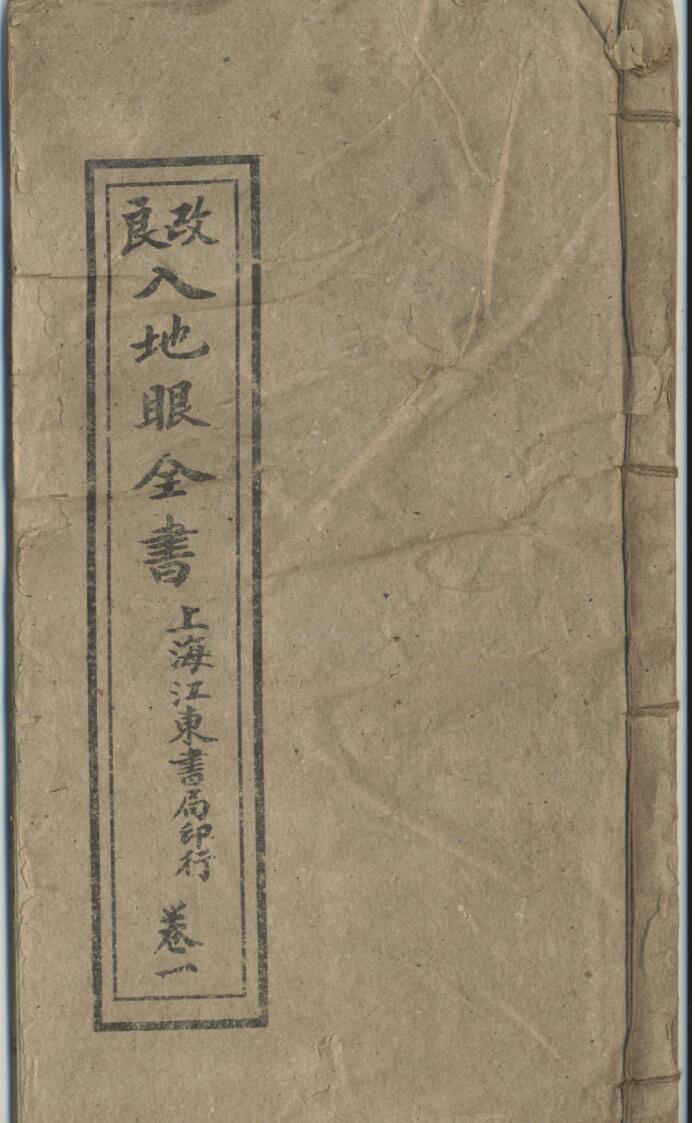 改良
入地眼全書
上海江東書局印行
卷一